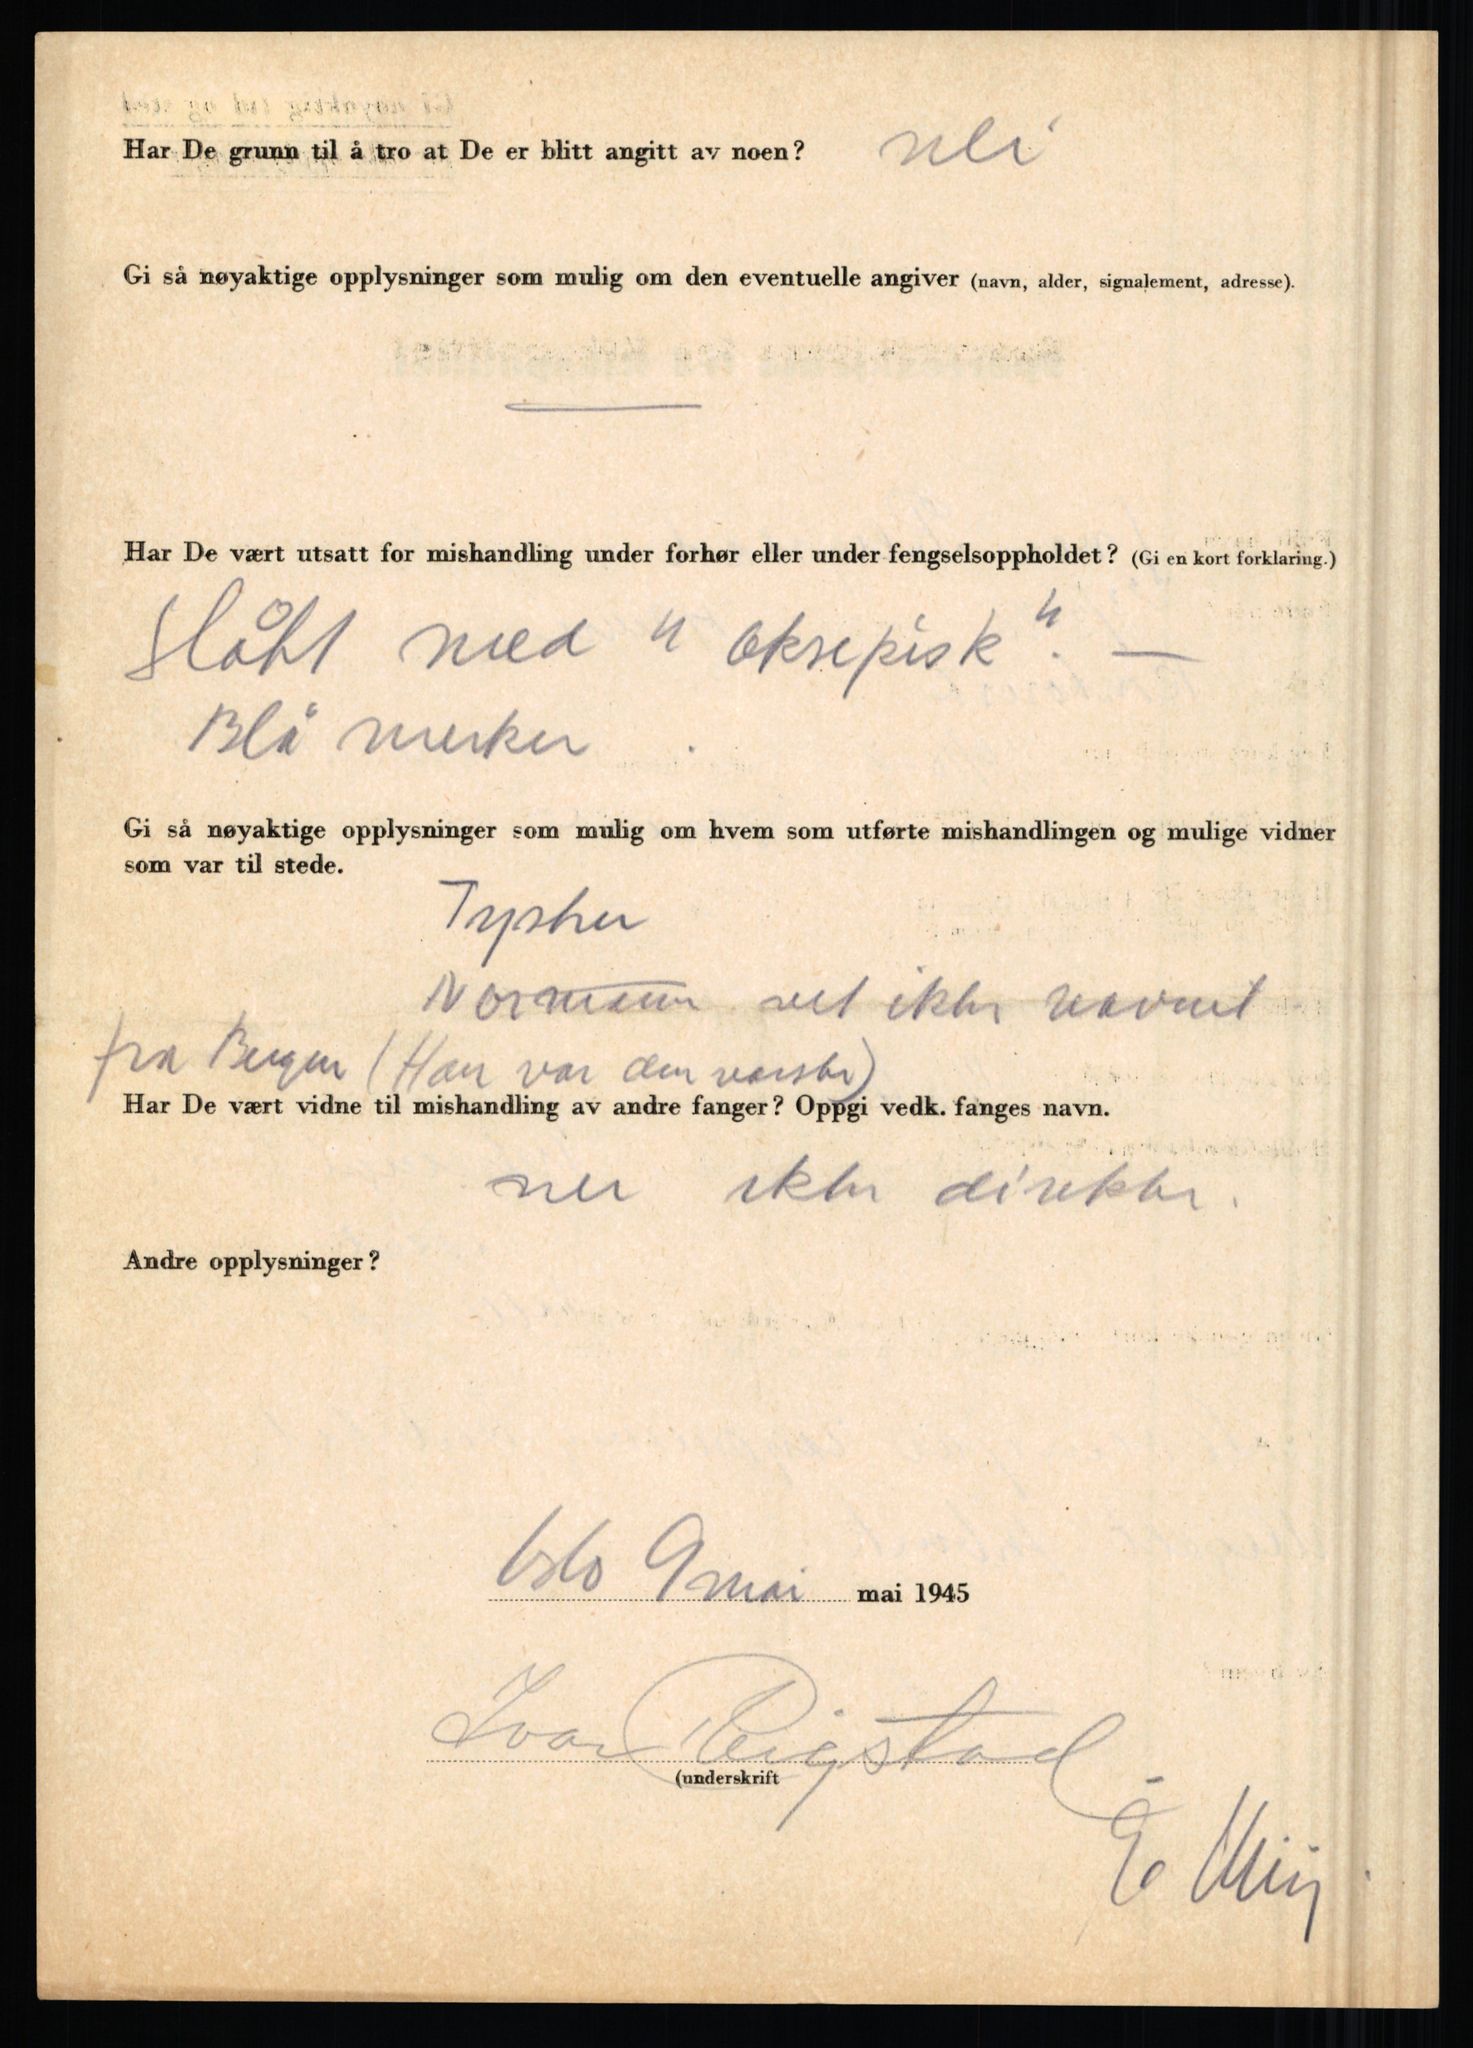 Har De grunn til å tro at De er blitt angitt av noen? nei
Gi så nøyaktige opplysninger som mulig om den eventuelle angiver (navn, alder, signalement, adresse).
Har De vært utsatt for mishandling under forhør eller under fengselsoppholdet? (Gi en kort forklaring.)
Slått med " oksepisk ". —
Blå merker .
Gi så nøyaktige opplysninger som mulig om hvem som utførte mishandlingen og mulige vidner
som var til stede.
Tysker
Normann vet ikke navnet
fra Bergen (Han var den varste)
Har De vært vidne til mishandling av andre fanger? Oppgi vedk. fanges navn.
nei ikke direkte.
Andre opplysninger?
Oslo 9 mai mai 1945
Ivar Reigstad
(underskrift